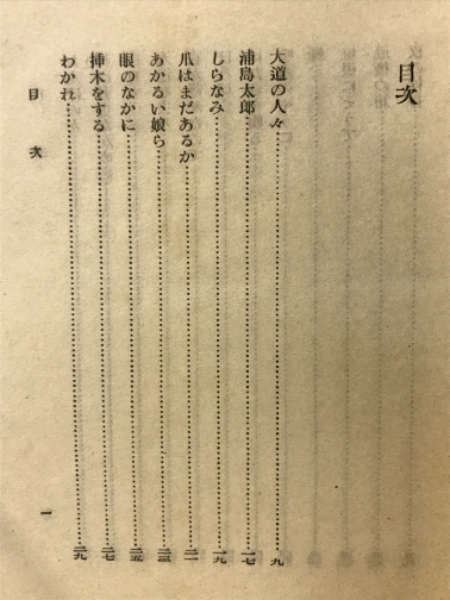 目次
大道の人々……九
浦島太郎……一七
しらなみ……一九
爪はまだあるか……二一
あかるい娘ら……二三
眼のなかに……二五
挿木をする……二七
わかれ……二九
目次
一